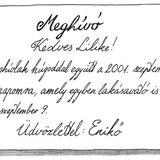 Meghívó
Kedves Lilike!
húgoddal együtt a 2001. szeptem
napomra, amely egyben lakásavató is
szeptember 9.
Üdvözlettel: Enikő